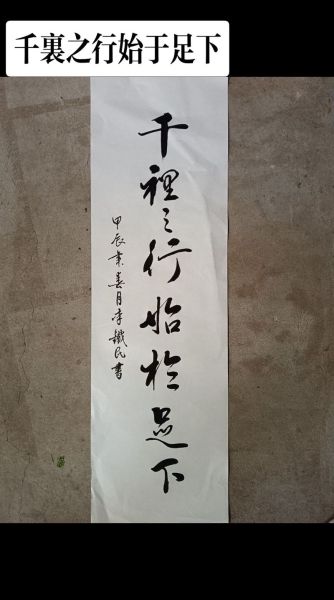 千裏之行始于足下
千裡之行始於足下
甲辰春月李鐵民書